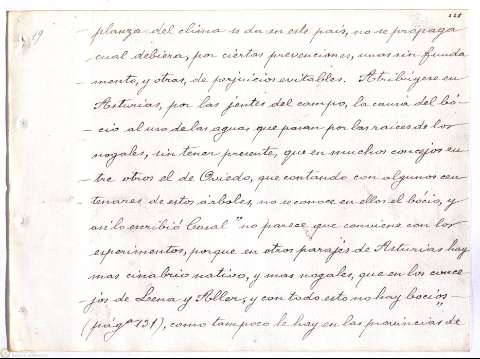 19
228
planza del clima es da en este pais, no se propaga
cual debiera, por ciertas prevenciones, unas sin funda
mento, y otras, de perjuicios evitables. Atribuyese en
Asturias, por las jentes del campo, la causa del bó-
cio al uso de las aguas que pasan por las raices de los
nogales, sin tener presente, que en muchos concejos en
tre otros el de Oviedo, que contando con algunos cen
tenares de estos árboles, no se conoce en ellos el bócio, y
asi lo escribió Casal "no parece que conviene con los
esperimentos, porque en otros parajes de Asturias hay
mas cinabrio nativo, y mas nogales, que en los conce
jos de Lena y Aller, y con todo esto no hay bocios"
(pág.ª 131), como tampoco le hay en las provincias de